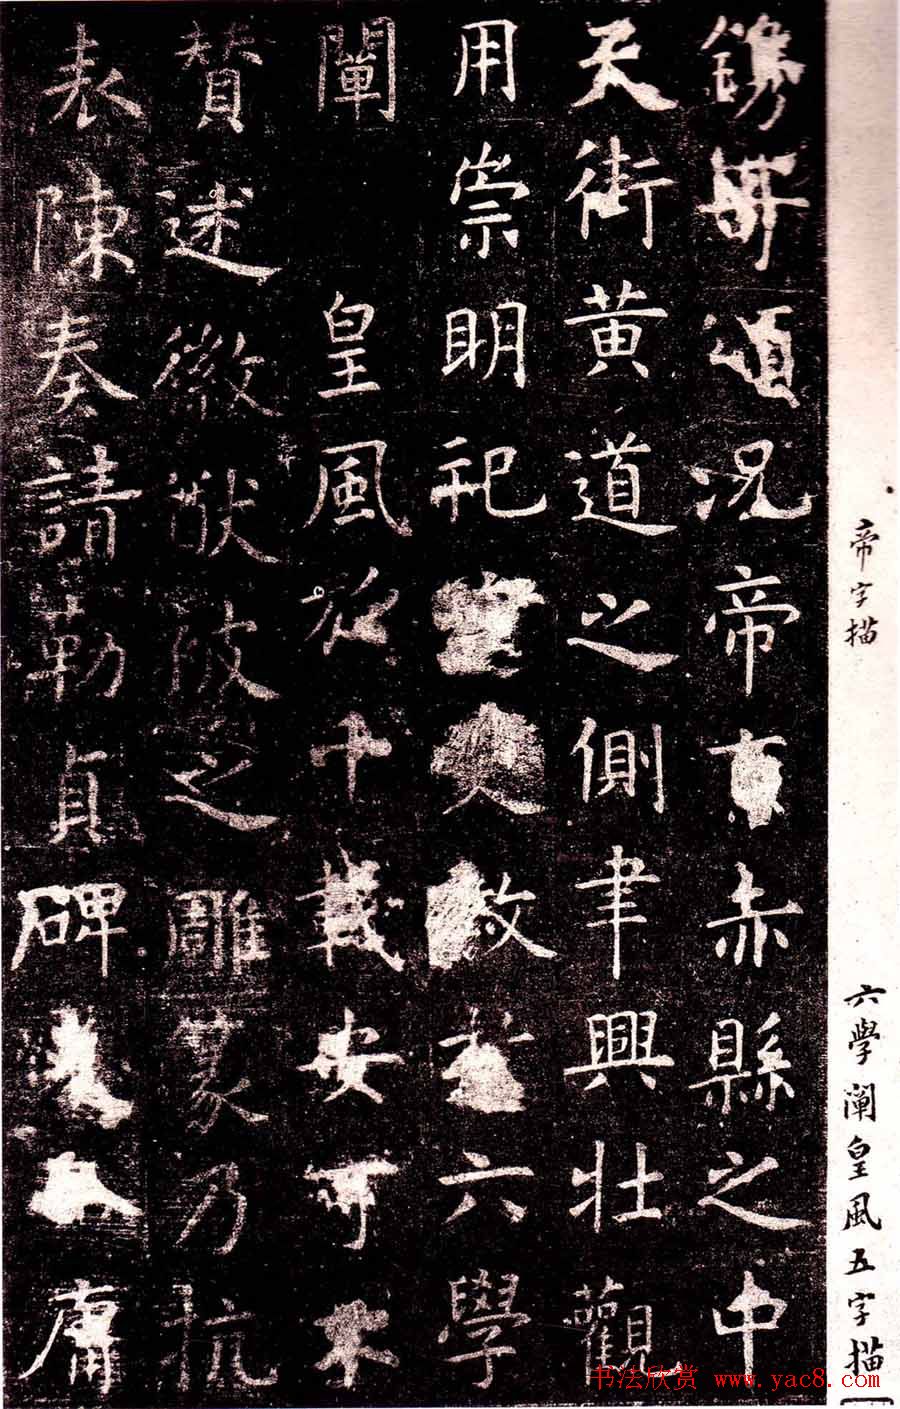 鐫華頌況帝京赤縣之中
天街黃道之側聿興壯觀
用崇明祀宣文敎於六學
闡皇風於千載安可不
贊述徽猷被之雕篆乃抗
表陳奏請勒貞碑
庸
帝字描
六學闡皇風五字描
书法欣赏 www.yac8.com